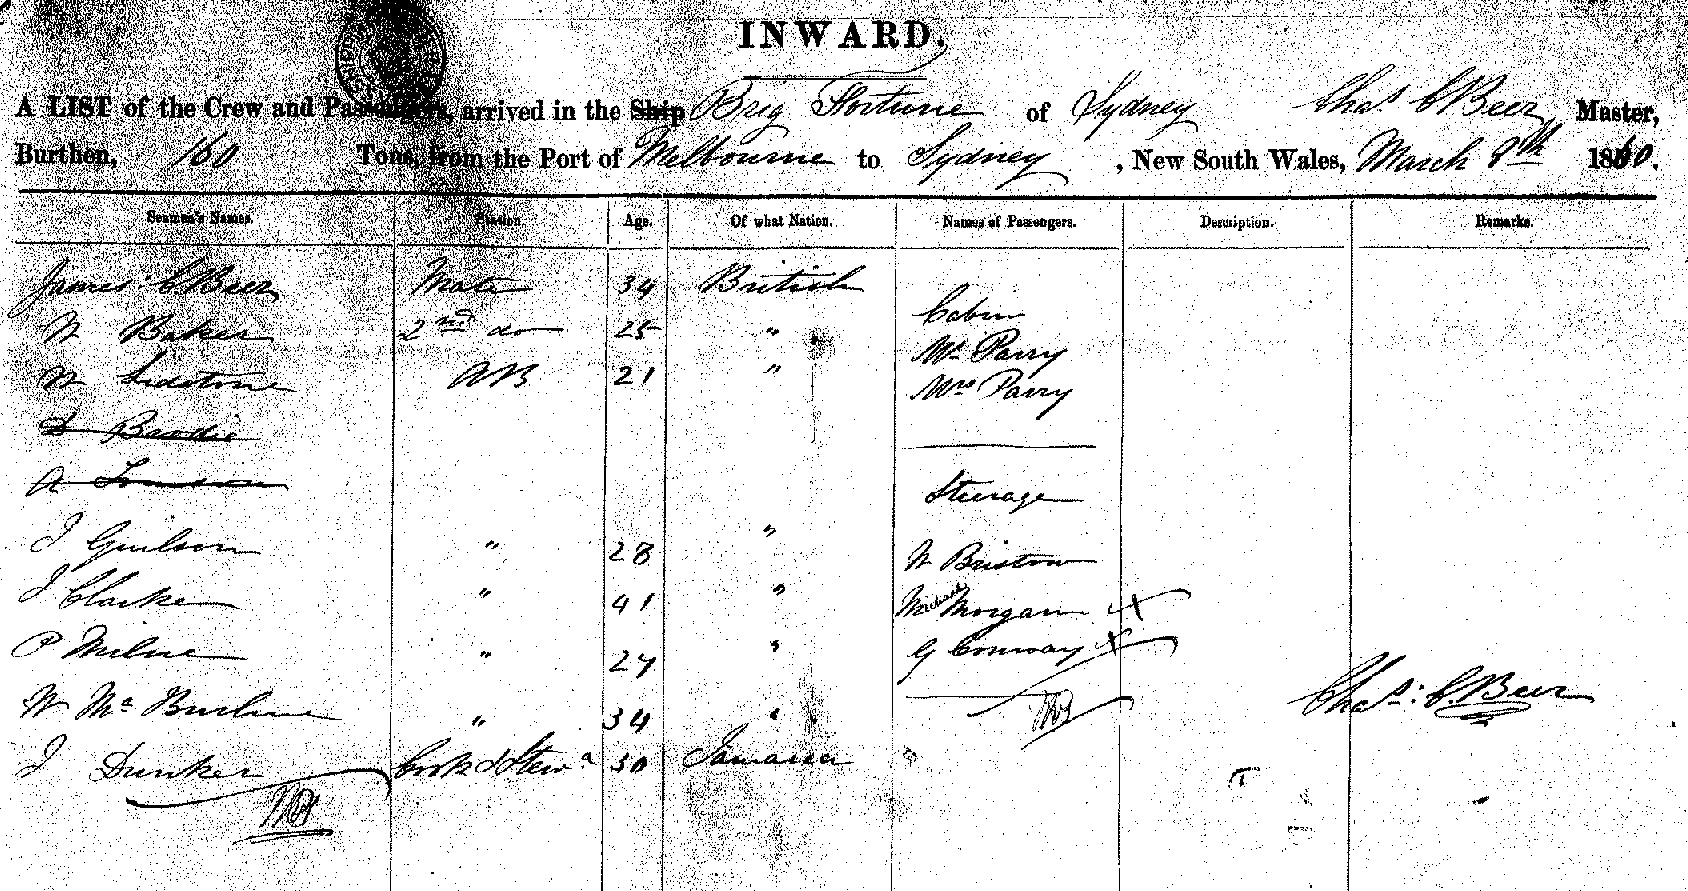 INWARD.
A LIST of the Crew and Passengers, arrived in the Ship Brig Fortune of Sydney Chas C Beer, Master,
Burthen, 160 Tons, from the Port of Melbourne to Sydney, New South Wales, March 8th 1860.
Seamen's Names. Station. Age. Of what Nation. Names of Passengers. Description. Remarks.
James C Beer Mate 34 British
Cabin
W Baker 2nd do 25 "
Mr Parry
W Lidstone AB 21 "
Mrs Parry
Brodie
A
Steerage
J Guilson " 28 "
W Bristow
J Clarke " 41 "
Michael Morgan
P Milne " 27 "
G Conway
Chas: C. Beer
W Mc " 34 "
J Dunker Cook & Stewd 30 Jamaica